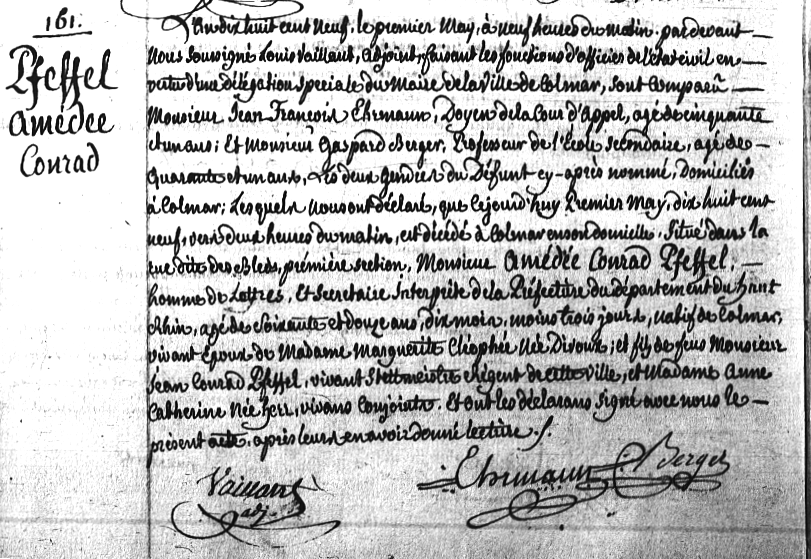 161.
Pfeffel
Amédée
Conrad
L'an dix huit cent neuf, le premier May, à neuf heures du matin. pardevant
Nous soussigné Louis Vaillant, adjoint, faisant les fonctions d'officier de l'état civil en
vertu d'une délégation speciale du Maire de la Ville de Colmar, sont comparû
Monsieur Jean François Ehrmann, Doyen de la Cour d'Appel, agé de cinquante
et un ans; Et Monsieur Gaspard Berger, Professeur de l'Ecole secondaire, agé de
quarante et un ans, Les deux gendres du Défunt cy-après nommé, Domiciliés
à Colmar; Lesquels nous ont déclaré, que cejourd'huy Premier May, dix huit cent
neuf, vers deux heures du matin, est décédé à Colmar en son domicile, situé dans la
rue dite des Bleds, prémière section, Monsieur Amédée Conrad Pfeffel,
homme de Lettres, Et Secretaire Interprète de la Préfecture du département du haut
Rhin, agé de soixante et douze ans, dix mois, moins trois jours, natif de Colmar,
vivant Epoux de Madame Marguerite Cléophée Née Divoux; et fils de feus Monsieur
Jean Conrad Pfeffel, vivant Stettmeistre régent de cette Ville, et Madame Anne
Catherine Née herr, vivans Conjoints. Et ont les déclarans signé avec nous le
présent acte, après leurs en avoir donné lecture ./.
Vaillant Ehrmann Berger
adj.